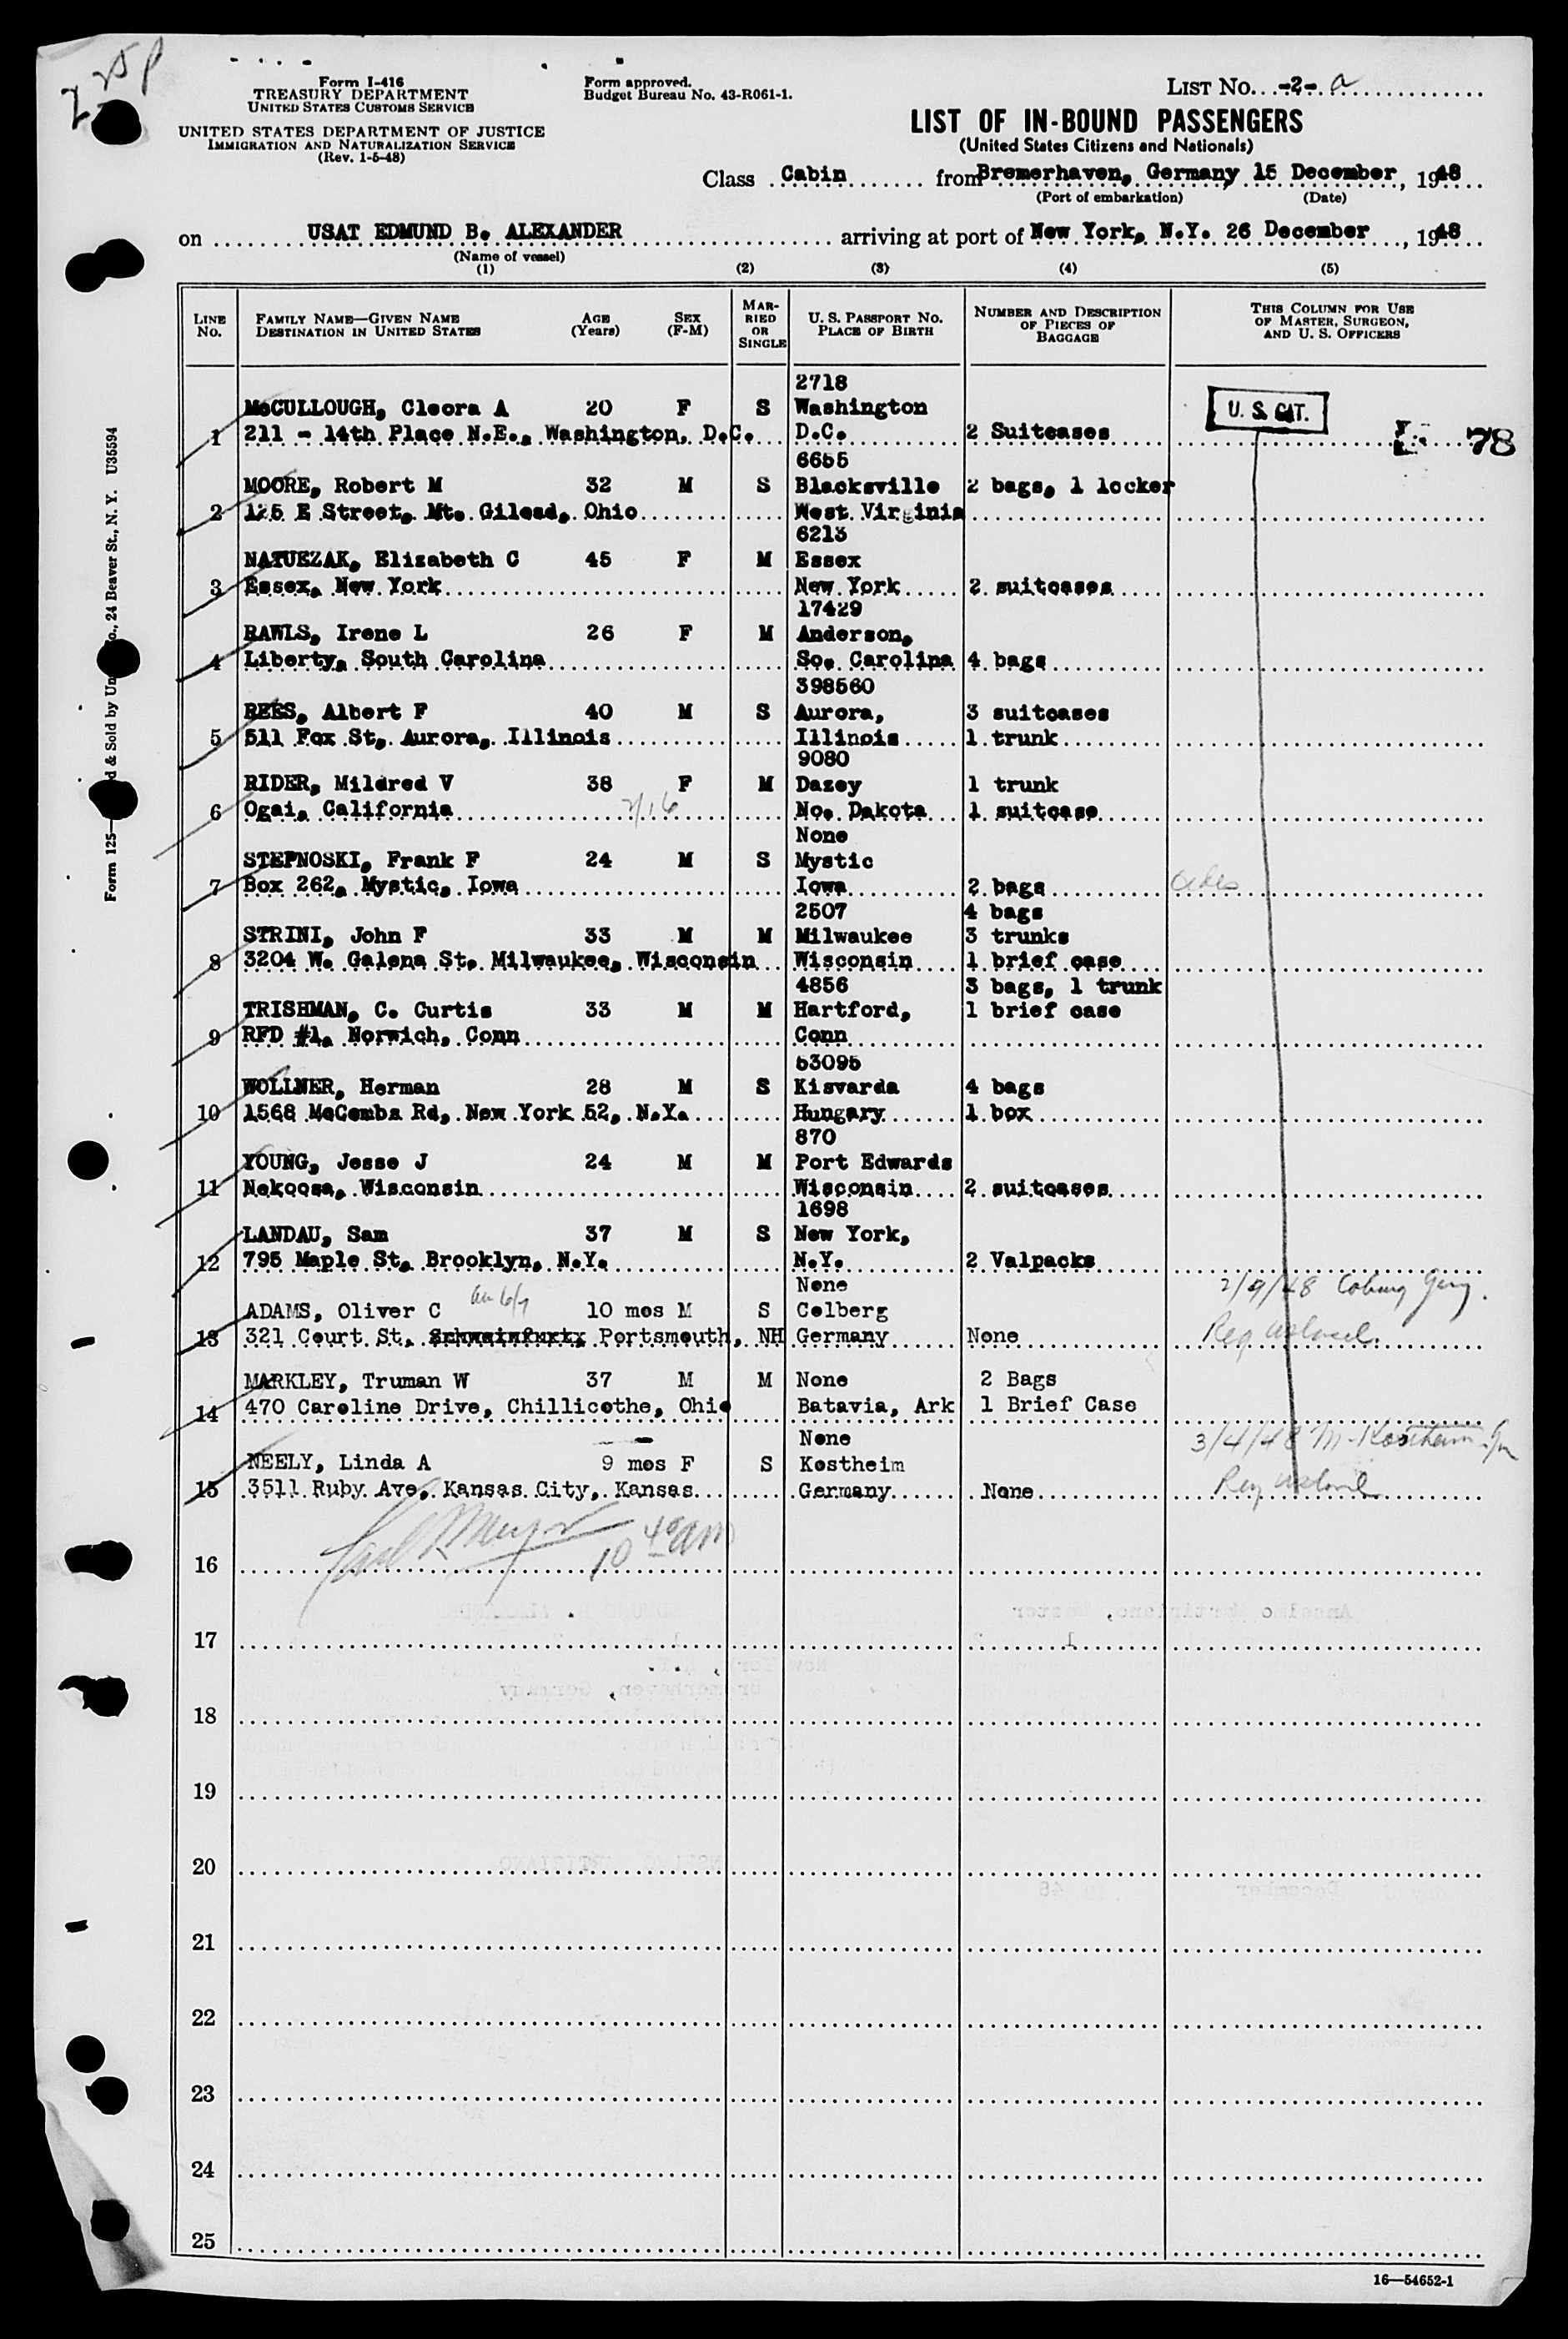 25 P
Form I-416
TREASURY DEPARTMENT
UNITED STATES CUSTOMS SERVICE
UNITED STATES DEPARTMENT OF JUSTICE
IMMIGRATION AND NATURALIZATION SERVICE
(Rev. 1-5-48)
Form approved.
Budget Bureau No. 43-R061-1.
LIST NO. -2- a
LIST OF IN-BOUND PASSENGERS
(United States Citizens and Nationals)
Class Cabin from Bremerhaven, Germany 15 December, 1948
(Port of embarkation) (Date)
on USAT EDMUND B. ALEXANDER arriving at port of New York, N.Y. 26 December, 1948
(Name of vessel)
(1) (2) (3) (4) (5)
LINE No. FAMILY NAME—GIVEN NAME DESTINATION IN UNITED STATES AGE (Years) SEX (F-M) MARRIED OR SINGLE U. S. PASSPORT NO. PLACE OF BIRTH NUMBER AND DESCRIPTION OF PIECES OF BAGGAGE THIS COLUMN FOR USE OF MASTER, SURGEON, AND U. S. OFFICERS
2718
McCULLOUGH, Cleora A 20 F S Washington U. S. CIT.
1 211 - 14th Place N.E., Washington, D.C. D.C. 2 Suitcases 78
6655
MOORE, Robert M 32 M S Blacksville 2 bags, 1 locker
2 125 E Street, Mt. Gilead, Ohio West Virginia
6213
NATUEZAK, Elizabeth C 45 F M Essex
3 Essex, New York New York 2 suitcases
17429
RAWLS, Irene L 26 F M Anderson,
4 Liberty, South Carolina So. Carolina 4 bags
398560
REES, Albert F 40 M S Aurora, 3 suitcases
5 511 Fox St, Aurora, Illinois Illinois 1 trunk
9080
RIDER, Mildred V 38 F M Dazey 1 trunk
6 Ogai, California 2/16 No. Dakota 1 suitcase
None
STEPNOSKI, Frank F 24 M S Mystic
7 Box 262, Mystic, Iowa Iowa 2 bags
2507 4 bags
STRINI, John F 33 M M Milwaukee 3 trunks
8 3204 W. Galena St. Milwaukee, Wisconsin Wisconsin 1 brief case
4856 3 bags, 1 trunk
TRISHMAN, C. Curtis 33 M M Hartford, 1 brief case
9 RFD #1, Norwich, Conn Conn
53095
WOLLNER, Herman 28 M S Kisvarda 4 bags
10 1568 McCombs Rd, New York 52, N.Y. Hungary 1 box
870
YOUNG, Jesse J 24 M M Port Edwards
11 Nekoosa, Wisconsin Wisconsin 2 suitcases
1698
LANDAU, Sam 37 M S New York,
12 795 Maple St, Brooklyn, N.Y. N.Y. 2 Valpacks
None 2/9/48 Coburg Ger.
ADAMS, Oliver C 10 mos M S Colberg
13 321 Court St, Schweinfurt, Portsmouth, NH Germany None
MARKLEY, Truman W 37 M M None 2 Bags
14 470 Caroline Drive, Chillicothe, Ohio Batavia, Ark 1 Brief Case
None 3/4/48
NEELY, Linda A 9 mos F S Kostheim
15 3511 Ruby Ave, Kansas City, Kansas Germany None
10 40 am
16
17
18
19
20
21
22
23
24
25
16—54652-1
Form 125— & Sold by Un o., 24 Beaver St., N. Y. U35594